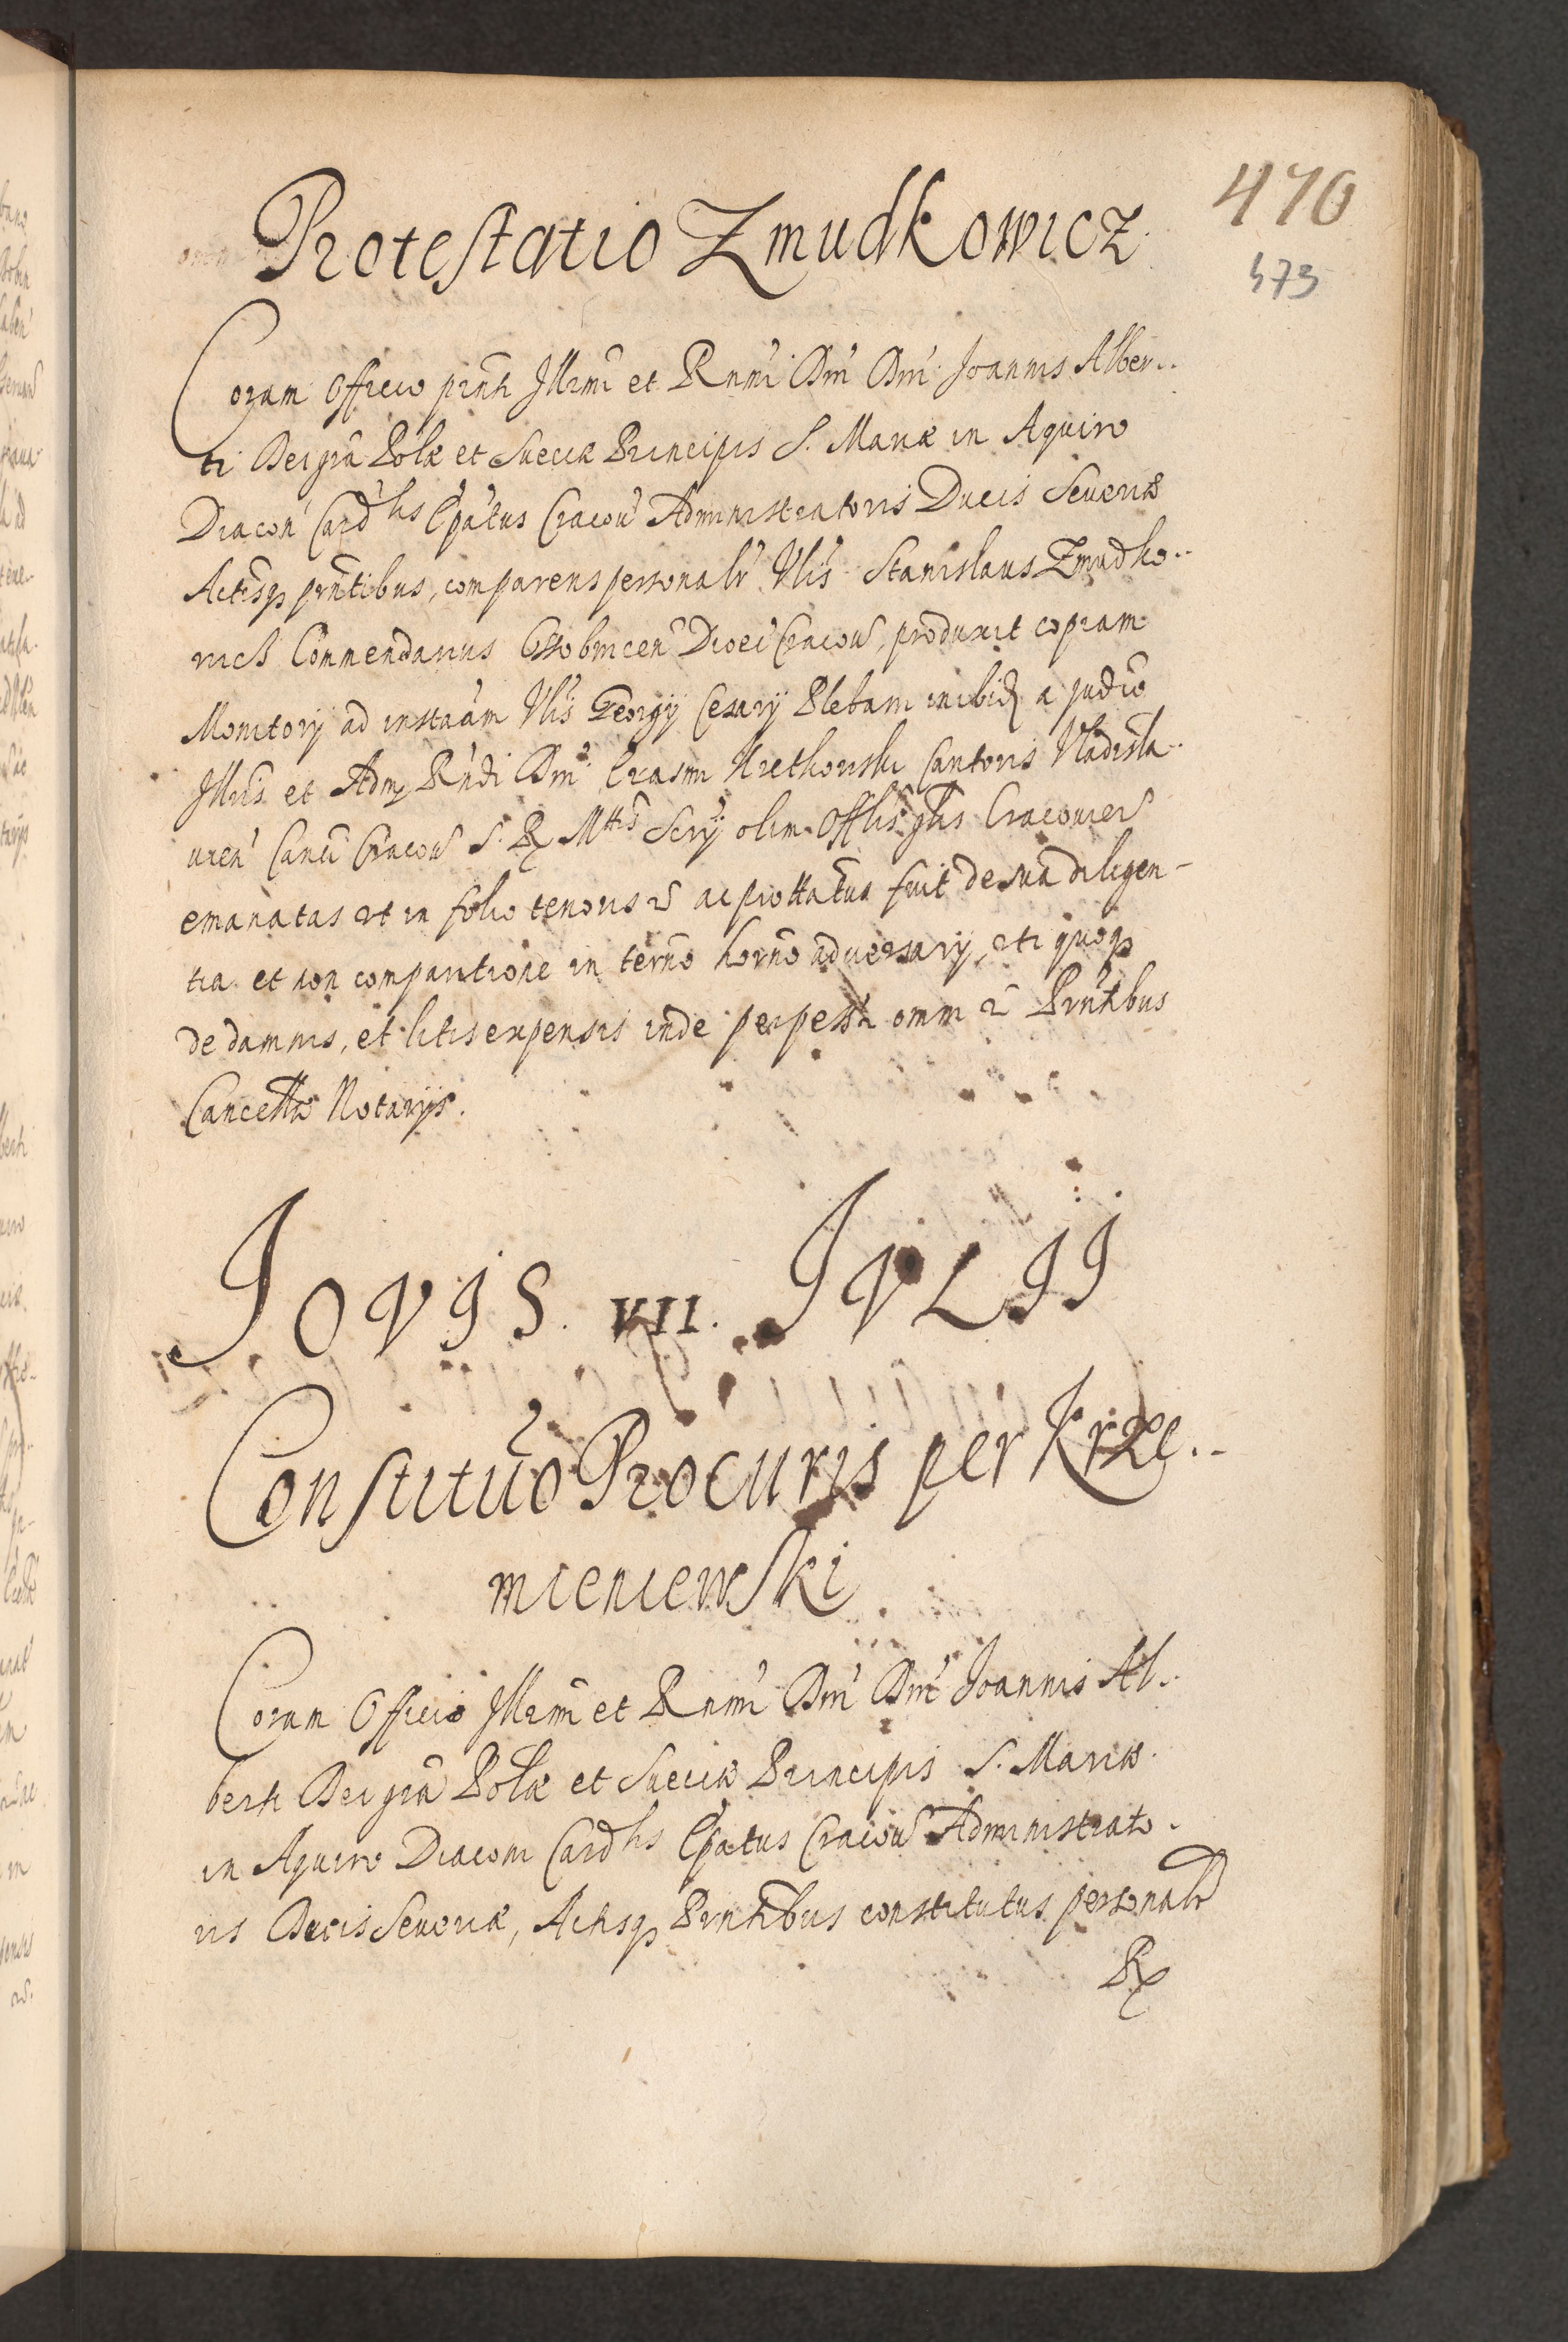 470
473
Protestatio Zmudkowicz
Coram Officio pñti Jllrmi et Rnmi Dni Dni Joannis Alber..
ti Dei grã Polæ et Sueciæ Principis S. Mariæ in Aquiro
Diacon Card lis Epatus Cracou Administratoris Ducis Seueriæ
Actisqз prñtibus, comparens personalr Vlis Stanislaus Zmudko..
wicz Commendarius Diœci Cracou, produxit copiam
Monitorij ad instaãm Vlis Georgij Cesarij Plebani inibid a judiõ
Jllris et Adm Rndi Dni Erasmi Kretkowski Cantoris Vladisla.
uien Canci Cracou S. R. Mttis Scrij olim Offlis glis Cracouien
emanatas ut in folio tenoris ac prottatus fuit de sua diligen-
tia et non comparitione in termõ hornõ adversarij, uti quoqз
de damnis, et litis expensis inde perpessis omni Prñtibus
Cancellæ Notarijs.
JOVJS. VII. JVLJJ
Constituõ Procuris per Krze..
mieniewski
Coram Officio Jllrmi et Rnmi Dni Dni Joannis Al.
berti Dei grã Polæ et Sueciæ Principis S. Mariæ
in Aquiro Diaconi Card lis Epatus Cracou Administrato.
ris Ducis Seueriæ, Actisqз Prñtibus constitutus personalr
R